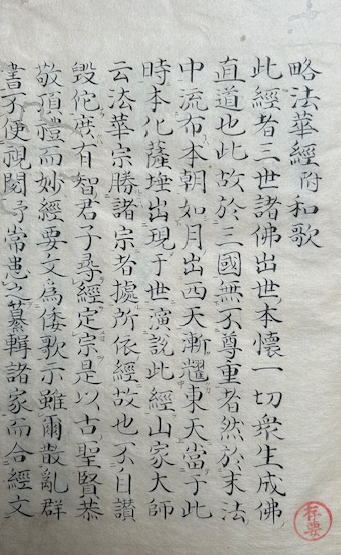 略法華經附和歌
此經者三世諸佛出世本懷一切衆生成佛
直道也此故於三國無不尊重者然於末法
中流布本朝如月出西天漸耀東天當于此
時本化薩埵出現于世演說此經山家大師
云法華宗勝諸宗者據所依經故也不自讃
毀佗庶有智君子尋經定宗是以古聖賢恭
敬頂禮而妙經要文為倭歌示雖爾散亂群
書不便視閲予常患之纂輯諸家而合經文
存要